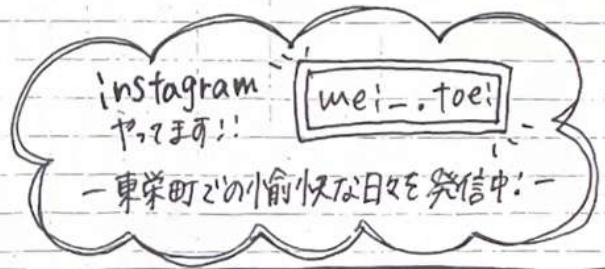 instagram
やってます!!
mei_.toei
-東栄町での愉快な日々を発信中!-